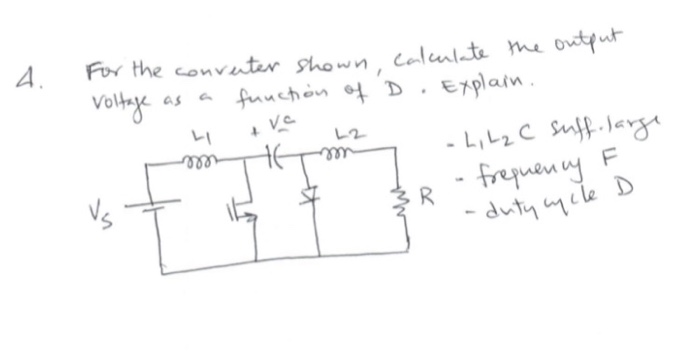 4. For the converter shown, calculate the output
voltage as a function of D. Explain.
L1 + Vc L2
- L1 L2 C suff. large
- frequency F
- duty cycle D
Vs
R